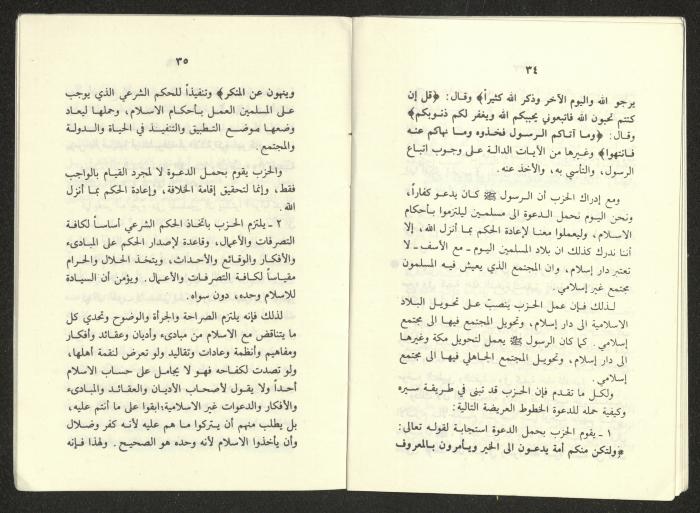 ٣٤
يرجو الله واليوم الآخر وذكر الله كثيراً﴾ وقال: ﴿قل إن
كنتم تحبون الله فاتبعوني يحببكم الله ويغفر لكم ذنوبكم﴾
وقال: ﴿وما آتاكم الرسول فخذوه وما نهاكم عنه
فانتهوا﴾ وغيرها من الآيات الدالة على وجوب اتباع
الرسول، والتأسي به، والأخذ عنه.
ومع إدراك الحزب أن الرسول ﷺ كان يدعو كفاراً،
ونحن اليوم نحمل الدعوة الى مسلمين ليلتزموا بأحكام
الاسلام، وليعملوا معنا لإعادة الحكم بما أنزل الله، إلا
أننا ندرك كذلك ان بلاد المسلمين اليوم ـ مع الأسف ـ لا
تعتبر دار إسلام، وان المجتمع الذي يعيش فيه المسلمون
مجتمع غير إسلامي.
لذلك فإن عمل الحزب ينصبّ على تحويل البلاد
الاسلامية الى دار إسلام، وتحويل المجتمع فيها الى مجتمع
إسلامي. كما كان الرسول ﷺ يعمل لتحويل مكة وغيرها
الى دار إسلام، وتحويل المجتمع الجاهلي فيها الى مجتمع
إسلامي.
ولكل ما تقدم فإن الحزب قد تبنى في طريقة سيره
وكيفية حمله للدعوة الخطوط العريضة التالية:
١ ـ يقوم الحزب بحمل الدعوة استجابة لقوله تعالى:
﴿ولتكن منكم أمة يدعون الى الخير ويأمرون بالمعروف
٣٥
وينهون عن المنكر﴾ وتنفيذاً للحكم الشرعي الذي يوجب
على المسلمين العمل بأحكام الاسلام، وحملها ليعاد
وضعها موضع التطبيق والتنفيذ في الحياة والدولة
والمجتمع.
والحزب يقوم بحمل الدعوة لا لمجرد القيام بالواجب
فقط، وإنما لتحقيق إقامة الخلافة، وإعادة الحكم بما أنزل
الله.
٢ ـ يلتزم الحزب باتخاذ الحكم الشرعي أساساً لكافة
التصرفات والأعمال، وقاعدة لإصدار الحكم على المبادىء
والأفكار والوقائع والأحداث، ويتخذ الحلال والحرام
مقياساً لكافة التصرفات والأعمال. ويؤمن أن السيادة
للاسلام وحده، دون سواه.
لذلك فإنه يلتزم الصراحة والجرأة والوضوح وتحدي كل
ما يتناقض مع الاسلام من مبادىء وأديان وعقائد وأفكار
ومفاهيم وأنظمة وعادات وتقاليد ولو تعرض لنقمة أهلها،
ولو تصدت لكفاحه فهو لا يجامل على حساب الاسلام
أحداً ولا يقول لأصحاب الأديان والعقائد والمبادىء
والأفكار والدعوات غير الاسلامية: ابقوا على ما أنتم عليه،
بل يطلب منهم أن يتركوا ما هم عليه لأنه كفر وضلال
وأن يأخذوا الاسلام لأنه وحده هو الصحيح. ولهذا فإنه